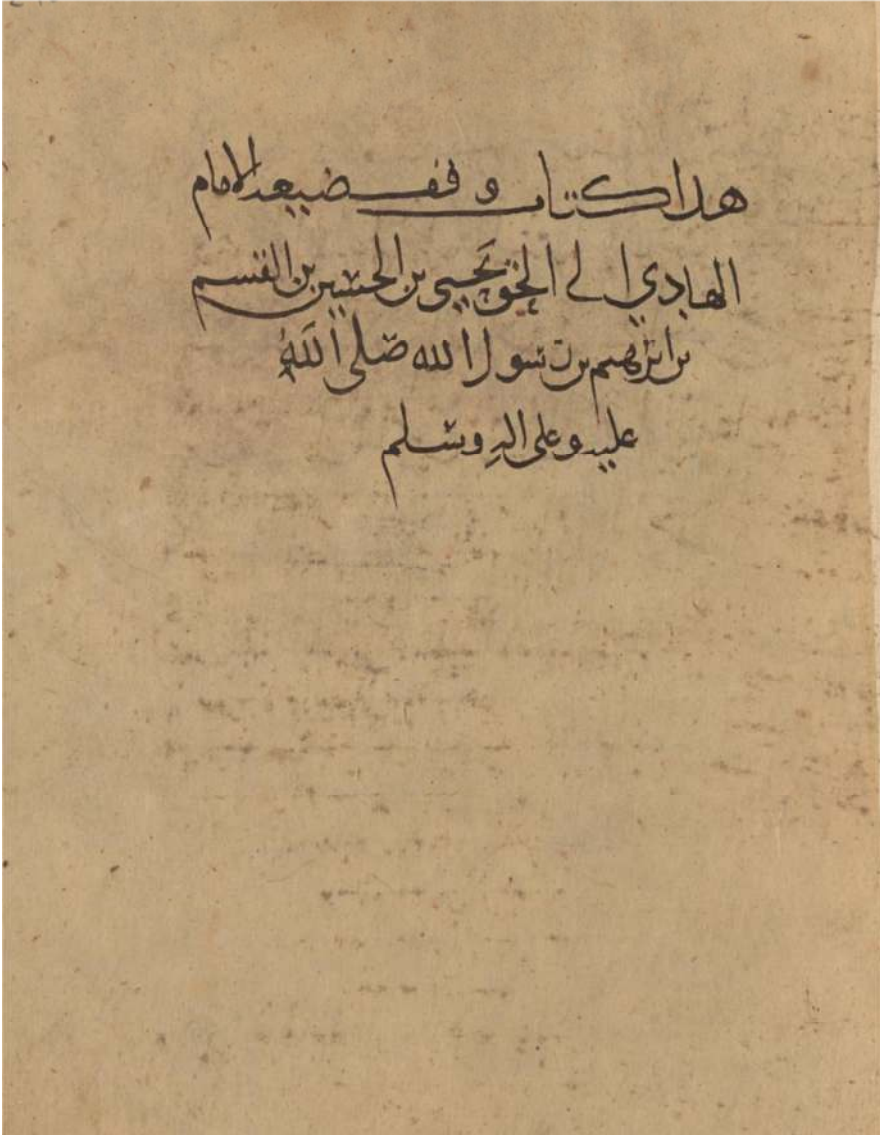 هدا كتاب وقف ضيعه الامام
الهادي الى الحق يَحيى بن الحسين بن القسم
بن ابرهيم بن رسول الله صَلى اللهُ
عليه وعلى الهِ وسلم